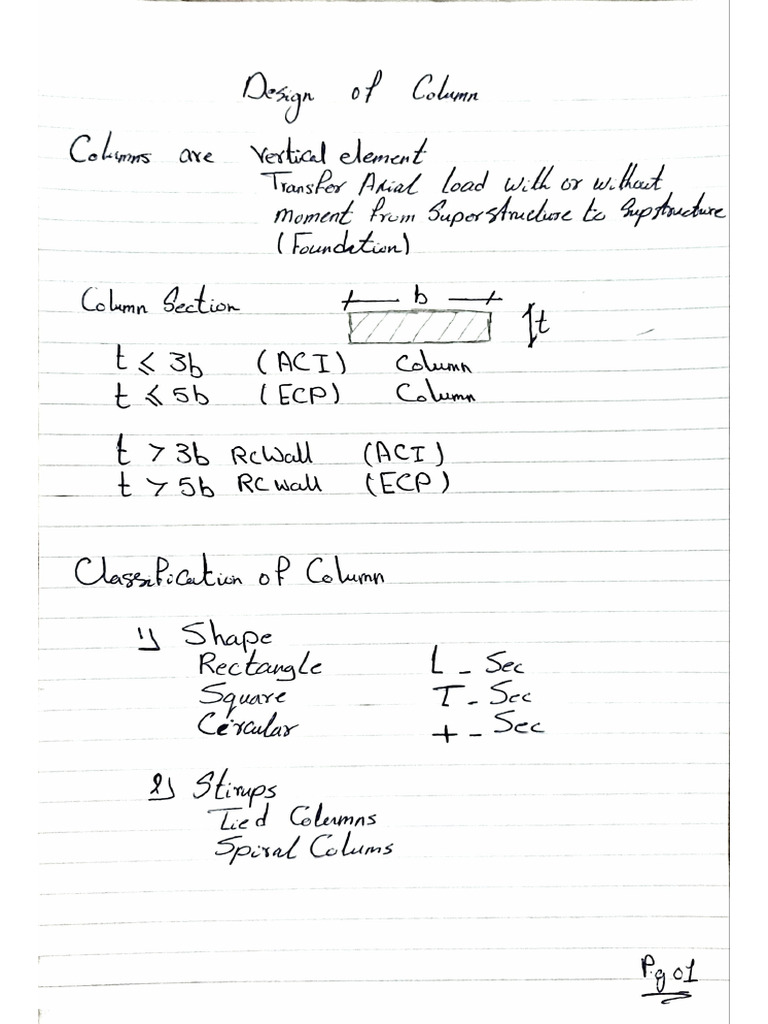 Design of Column
Columns are vertical element
Transfer Axial load with or without
moment from Superstructure to Supstructure
(Foundation)
Column Section
b
t
t ⩽ 3b (ACI) Column
t ⩽ 5b (ECP) Column
t > 3b RC Wall (ACI)
t > 5b RC wall (ECP)
Classification of Column
1) Shape
Rectangle L - Sec
Square T - Sec
Circular + - Sec
2) Stirups
Tied Columns
Spiral Colums
P.g 01